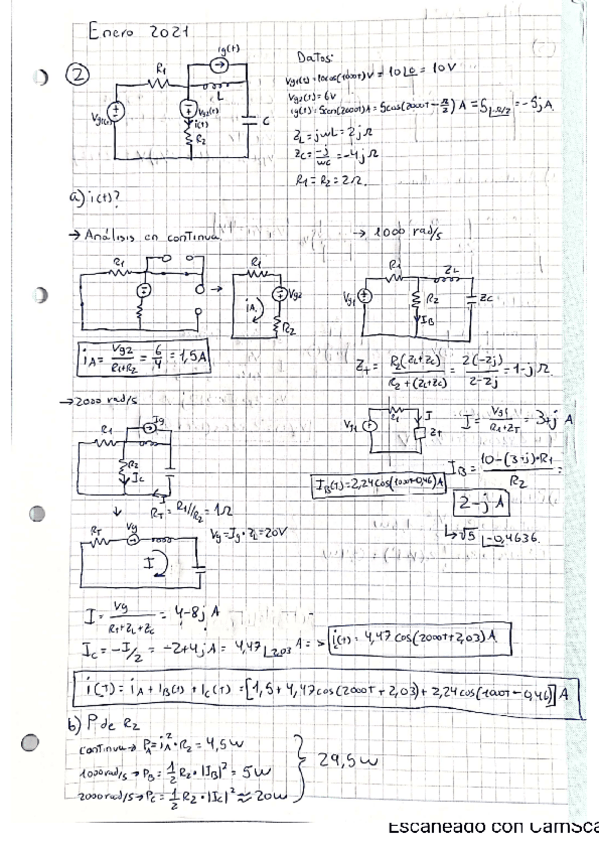 Enero 2021
2
ig(t)
R1
L
Vg1(t)
Vg2(t)
i(t)
R2
C
Datos:
Vg1(t)=10cos(1000t)V = 10∠0 = 10V
Vg2(t)=6V
ig(t)=5sen(2000t)A=5cos(2000t-π/2) A = 5∠-π/2 = -5jA
ZL=jωL=2jΩ
ZC=-j/ωC=-4jΩ
R1=R2=2Ω.
a) i(t)?
→ Análisis en continua.
→ 1000 rad/s
R1
R1
iA
Vg2
R2
R1
ZL
Vg1
R2
IB
ZC
iA = Vg2/(R1+R2) = 6/4 = 1,5A
ZT = R2(ZL+ZC)/(R2+(ZL+ZC)) = 2(-2j)/(2-2j) = 1-jΩ
→2000 rad/s
Ig
R1
R2
IC
I
Vg1
I
ZT
I = Vg1/(R1+ZT) = 3+j A
IB = (10-(3+j)·R1)/R2 =
2-j A
↳ √5 ∠-0,4636
IB(t)=2,24cos(1000t-0,46)A
RT=R1//R2=1Ω
RT
Vg
I
Vg=Ig·ZL=20V
I = Vg/(RT+ZL+ZC) = 4-8j A
IC = -I/2 = -2+4j A = 4,47∠2,03 A => i(t) = 4,47 cos(2000t+2,03)A
i(t) = iA + IB(t) + IC(t) = [1,5+4,47cos(2000t+2,03)+2,24cos(1000t-0,46)] A
b) P de R2
continua→ PA=iA²·R2 = 4,5w
1000rad/s → PB = 1/2 R2·|IB|² = 5w
2000rad/s→ PC = 1/2 R2·|IC|² ≈ 20w
29,5w
Escaneado con CamSca